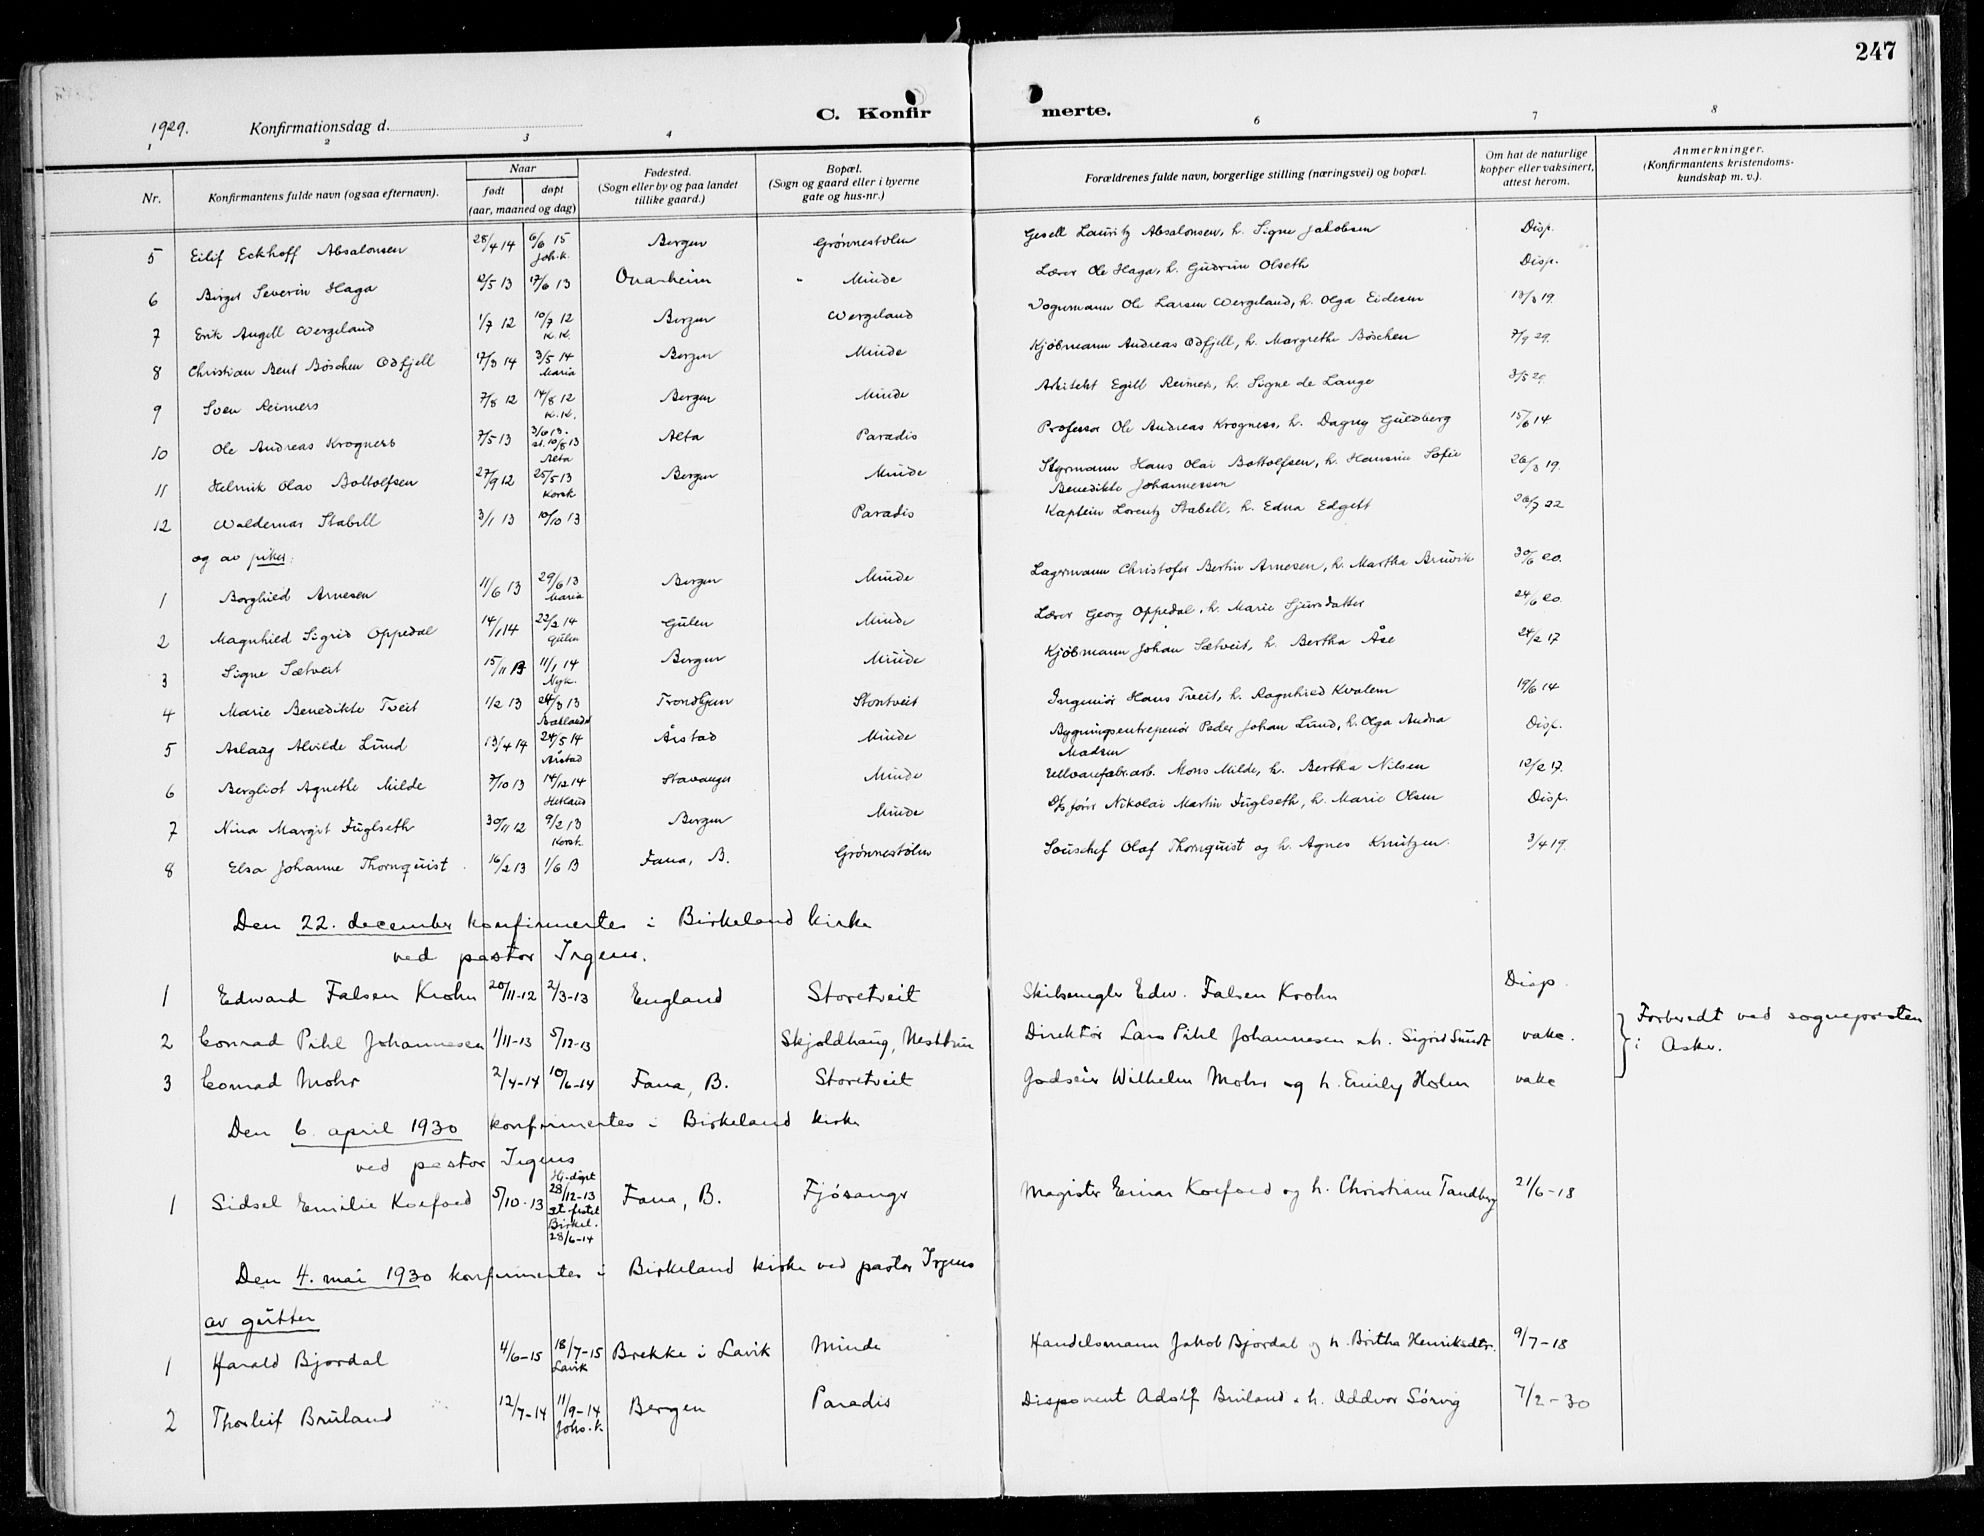 247
C. Konfirmerte.
1929. Konfirmationsdag d.
1 2 3 4 6 7 8
Nr. Konfirmantens fulde navn (ogsaa efternavn). Naar født døpt (aar, maaned og dag) Fødested. (Sogn eller by og paa landet tillike gaard.) Bopæl. (Sogn og gaard eller i byerne gate og hus-nr.) Forældrenes fulde navn, borgerlige stilling (næringsvei) og bopæl. Om hat de naturlige kopper eller vaksinert, attest herom. Anmerkninger. (Konfirmantens kristendomskundskap m. v.).
5 Eilif Eckhoff Absalonsen 28/4 14 6/6 15 Joh.k. Bergen Grønnestølen Gesell Lauritz Absalonsen, h. Signe Jakobsen Disp.
6 Birger Severin Haga 12/5 13 17/6 13 Onarheim " Minde Lærer Ole Haga, h. Gudrun Olseth Disp.
7 Erik Angell Wergeland 1/7 12 10/7 12 K.K. Bergen Wergeland Vognmann Ole Larsen Wergeland, h. Olga Eidesen 13/3 19.
8 Christian Bent Böschen Odfjell 17/3 14 3/5 14 Maria Bergen Minde Kjøbmann Andreas Odfjell, h. Margrethe Böschen 7/9 29.
9 Sven Reimers 7/8 12 14/8 12 K.K. Bergen Minde Arkitekt Egill Reimers, h. Signe de Lange 3/5 29.
10 Ole Andreas Krogness 7/5 13 3/6 13. st. 10/8 13 Alta Alta Paradis Professor Ole Andreas Krogness, h. Dagny Guldberg 15/6 14
11 Helmik Olav Bottolfsen 27/9 12 25/5 13 Korsk Bergen Minde Styrmann Hans Olai Bottolfsen, h. Hansine Sofie
Benedikte Johannessen 26/3 19.
12 Waldemar Stabell 3/1 13 10/10 13 Paradis Kaptein Lorentz Stabell, h. Edna Edgett 26/7 22
og av piker:
1 Borghild Arnesen 11/6 13 29/6 13 Maria Bergen Minde Lagermann Christofer Bertin Arnesen, h. Martha Arnvik 30/6 20.
2 Magnhild Sigrid Oppedal 14/1 14 22/2 14 Gulen Gulen Minde Lærer Georg Oppedal, h. Marie Sjursdatter 24/6 20.
3 Signe Sætveit 15/11 13 11/1 14 Nyk. Bergen Minde Kjøbmann Johan Sætveit, h. Bertha Åse 24/2 17
4 Marie Benedikte Tveit 1/2 13 24/3 13 Trondhjem Storetveit Ingeniør Hans Tveit, h. Ragnhild Kvalem 19/6 14
5 Aslaug Alvilde Lund 13/4 14 24/5 14 Årstad Årstad Minde Bygningsentreprenør Peder Johan Lund, h. Olga Andrea
Madsen Disp.
6 Bergliot Agnethe Milde 7/10 13 14/12 14 Hetland Stavanger Minde Ullvarefabr.arb. Mons Milde, h. Bertha Nilsen 12/2 17.
7 Nina Margit Fuglseth 30/11 12 9/2 13 Korsk. Bergen Minde D/s fører Nikolai Martin Fuglseth, h. Marie Olsen Disp.
8 Elsa Johanne Thornquist 16/2 13 1/6 13 Fana, B. Grønnestølen Souschef Olaf Thornquist og h. Agnes Knutzen. 3/4 19.
Den 22. december konfirmertes i Birkeland kirke
ved pastor Irgens.
1 Edward Falsen Krohn 20/11-12 2/3-13 England Storetveit Skibsmegler Edw. Falsen Krohn Disp.
2 Conrad Pihl Johannesen 1/11-13 5/12-13 Skjoldhaug, Nesttun Direktør Lars Pihl Johannesen & h. Sigrid Sundt vakc.
3 Conrad Mohr 2/4-14 10/6-14 Fana, B. Storetveit Godseier Wilhelm Mohr og h. Emily Holm vakc
Forberedt ved sognepresten
i Asker.
Den 6. april 1930 konfirmertes i Birkeland kirke
ved pastor Irgens
1 Sidsel Emilie Koefoed 5/10-13 Hj.døpt 28/12-13 st. festet Birkel. 28/6-14 Fana, B. Fjøsanger Magister Einar Koefoed og h. Christiane Tandberg 21/6-18
Den 4. mai 1930 konfirmertes i Birkeland kirke ved pastor Irgens
av gutter
1 Harald Bjordal 4/6-15 18/7-15 Lavik Brekke i Lavik Minde Handelsmann Jakob Bjordal og h. Britha Henriksdtr. 9/7-18
2 Thorleif Bruland 12/7-14 11/9-14 Johs.k Bergen Paradis Disponent Adolf Bruland & h. Oddvor Sörvig 7/2-30